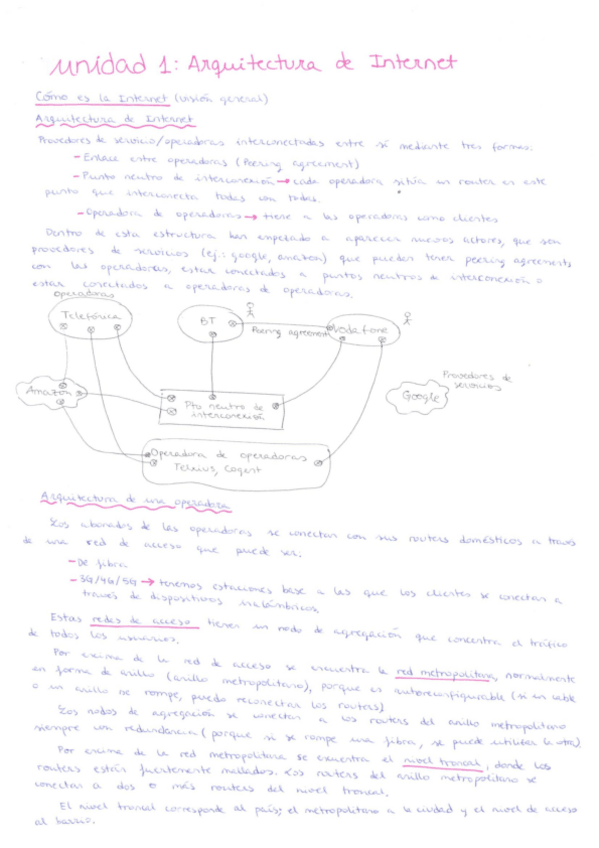 Unidad 1: Arquitectura de Internet
Cómo es la Internet (visión general)
Arquitectura de Internet
Provedores de servicio/operadoras interconectadas entre sí mediante tres formas:
- Enlace entre operadoras (Peering agreement)
- Punto neutro de interconexión → cada operadora sitúa un router en este
punto que interconecta todas con todas.
- Operadora de operadoras → tiene a las operadoras como clientes
Dentro de esta estructura han empezado a aparecer nuevos actores, que son
provedores de servicios (ej.: google, amazon) que pueden tener peering agreements
con las operadoras, estar conectados a puntos neutros de interconexión o
estar conectados a operadoras de operadoras.
Operadoras
Telefónica
BT
Peering agreement
Vodafone
Amazon
Pto neutro de
interconexión
Provedores de
servicios
Google
Operadora de operadoras
Telxius, Cogent
Arquitectura de una operadora
Los abonados de las operadoras se conectan con sus routers domésticos a través
de una red de acceso que puede ser:
- De fibra
- 3G/4G/5G → tenemos estaciones base a las que los clientes se conectan a
través de dispositivos inalámbricos
Estas redes de acceso tienen un nodo de agregación que concentra el tráfico
de todos los usuarios.
Por encima de la red de acceso se encuentra la red metropolitana, normalmente
en forma de anillo (anillo metropolitano), porque es autoreconfigurable (si un cable
o un anillo se rompe, puedo reconectar los routers)
Los nodos de agregación se conectan a los routers del anillo metropolitano
siempre con redundancia (porque si se rompe una fibra, se puede utilizar la otra)
Por encima de la red metropolitana se encuentra el nivel troncal, donde los
routers están fuertemente mallados. Los routers del anillo metropolitano se
conectan a dos o más routers del nivel troncal.
El nivel troncal corresponde al país; el metropolitano a la ciudad y el nivel de acceso
al barrio.